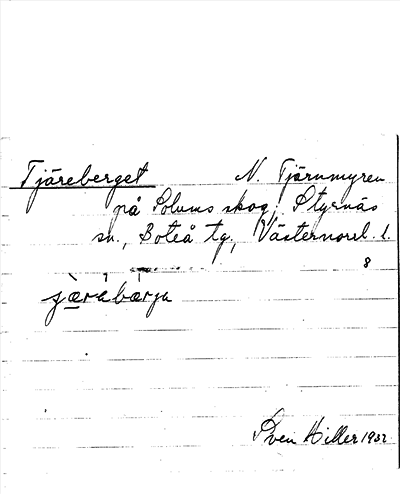 Tjäreberget N. Tjärnmyren
på Solums skog, Styrnäs
sn., Boteå tg., Västernorrl. l.
8
jæ̀ràbærja
Sven Hiller 1932